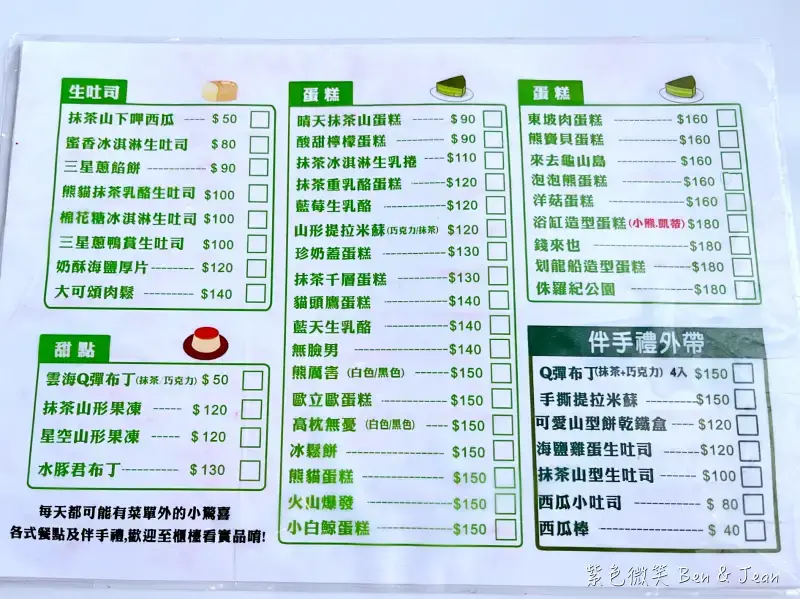 生吐司
抹茶山下呷西瓜 ---- $50
蜜香冰淇淋生吐司 $80
三星蔥餡餅 ---------- $90
熊貓抹茶乳酪生吐司 $100
棉花糖冰淇淋生吐司 $100
三星蔥鴨賞生吐司 $100
奶酥海鹽厚片 --------- $120
大可頌肉鬆 ---------- $140
甜點
雲海Q彈布丁(抹茶/巧克力) $50
抹茶山形果凍 ----- $120
星空山形果凍 ----- $120
水豚君布丁 ---------- $130
每天都可能有菜單外的小驚喜
各式餐點及伴手禮,歡迎至櫃檯看實品唷!
蛋糕
晴天抹茶山蛋糕 ------ $90
酸甜檸檬蛋糕 ------ $90
抹茶冰淇淋生乳捲 ---- $110
抹茶重乳酪蛋糕 ------ $120
藍莓生乳酪 ---------- $120
山形提拉米蘇(巧克力/抹茶) $120
珍奶蓋蛋糕 --------- $130
抹茶千層蛋糕 -------- $130
貓頭鷹蛋糕 ---------- $140
藍天生乳酪 ---------- $140
無臉男 ------------- $140
熊厲害 (白色/黑色) ----- $150
歐立歐蛋糕 ---------- $150
高枕無憂 (白色/黑色) ---- $150
冰鬆餅 -------------- $150
熊貓蛋糕 ------------ $150
火山爆發 ------------ $150
小白鯨蛋糕 ---------- $150
蛋糕
東坡肉蛋糕 ---------- $160
熊寶貝蛋糕 ---------- $160
來去龜山島 ---------- $160
泡泡熊蛋糕 ---------- $160
洋菇蛋糕 ------------ $160
浴缸造型蛋糕(小熊.凱蒂) $180
錢來也 ------------- $180
划龍船造型蛋糕 ------- $180
侏羅紀公園 ---------- $180
伴手禮外帶
Q彈布丁(抹茶+巧克力) 4入 $150
手撕提拉米蘇 --------- $150
可愛山型餅乾鐵盒 ---- $120
海鹽雞蛋生吐司 ------ $120
抹茶山型生吐司 ------ $100
西瓜小吐司 ---------- $ 80
西瓜棒 ------------- $ 40
紫色微笑 Ben & Jean